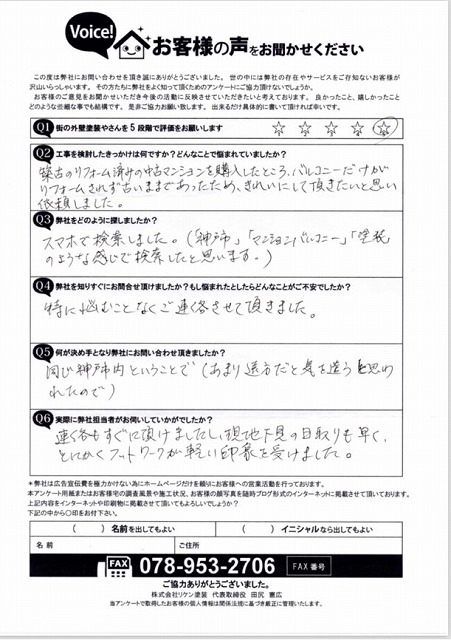 Voice!
お客様の声をお聞かせください
この度は弊社にお問い合わせを頂き誠にありがとうございました。世の中には弊社の存在やサービスをご存知ないお客様が
沢山いらっしゃいます。その方たちに弊社をよく知って頂くためのアンケートにご協力頂けないでしょうか。
お客様のご意見をお聞かせいただき今後の活動に反映させていただきたいと考えております。良かったこと、嬉しかったこと
どのような些細な事でも結構です。是非ご協力お願い致します。出来るだけ具体的に書いて頂ければ幸いです。
Q1 街の外壁塗装やさんを5段階で評価をお願いします ☆ ☆ ☆ ☆ ☆
Q2 工事を検討したきっかけは何ですか?どんなことで悩まれていましたか?
築古のリフォーム済みの中古マンションを購入したところ、バルコニーだけが
リフォームされず古いままであったため、きれいにして頂きたいと思い
依頼しました。
Q3 弊社をどのように探しましたか?
スマホで検索しました。(「神戸市」「マンションバルコニー」「塗装」
のような感じで検索したと思います。)
Q4 弊社を知りすぐにお問合せ頂けましたか?もし悩まれたとしたらどんなことがご不安でしたか?
特に悩むことなくご連絡させて頂きました。
Q5 何が決め手となり弊社にお問い合わせ頂きましたか?
同じ神戸市内ということで(あまり遠方だと気を遣うと思わ
れたので)
Q6 実際に弊社担当者がお伺いしていかがでしたか?
連絡もすぐに頂けましたし、現地下見の日取りも早く、
とにかくフットワークが軽い印象を受けました。
*弊社は広告宣伝費を極力かけない為にホームページだけを頼りにお客様への営業活動を行っております。
本アンケート用紙またはお客様宅の調査風景や施工状況、お客様の顔写真を随時ブログ形式のインターネットに掲載させて頂いております。
上記内容をインターネットや印刷物に掲載させて頂いてもよろしいでしょうか?
下記の中から〇印をお付下さい。
( )名前を出してもよい ( )イニシャルなら出してもよい
名前 ご住所
FAX 078-953-2706 FAX 番号
ご協力ありがとうございました。
株式会社リケン塗装 代表取締役 田尻 憲広
当アンケートで取得したお客様の個人情報は関係法規に基づき厳正に管理いたします。